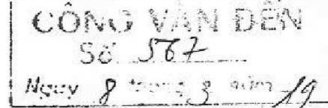 CÔNG VĂN ĐẾN
Số 567
Ngày 8 tháng 3 năm 19